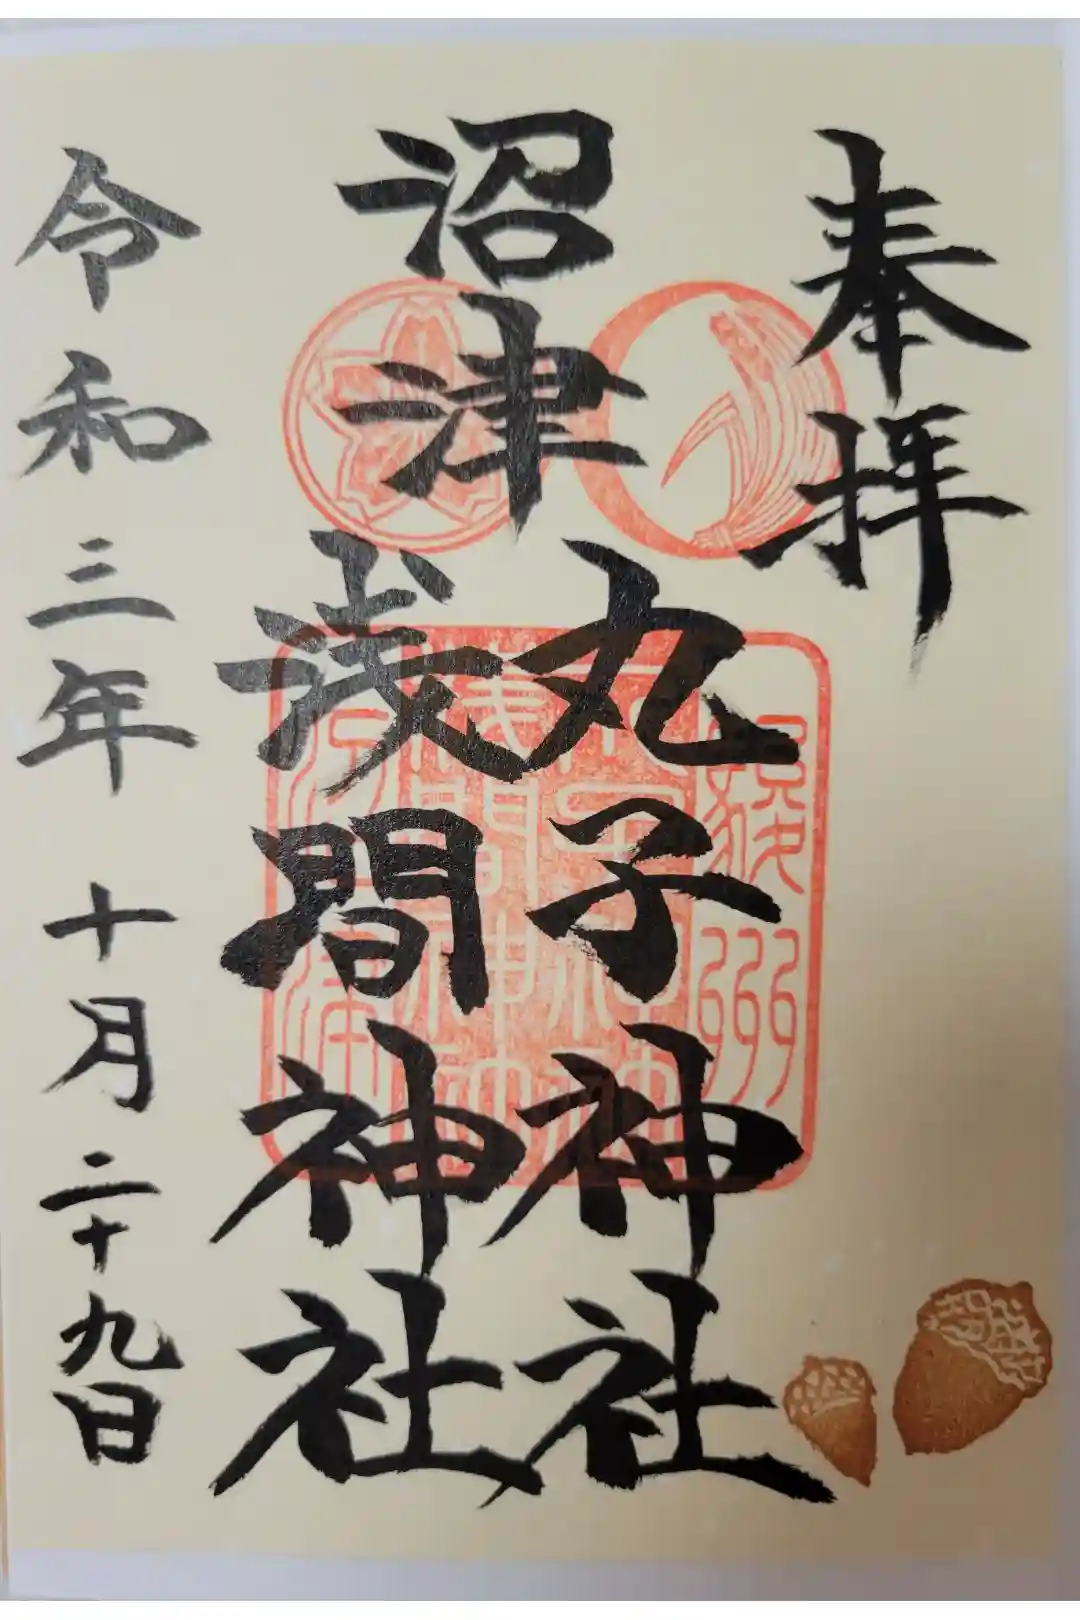 奉拝
沼津
丸子神社
浅間神社
令和三年 十月二十九日